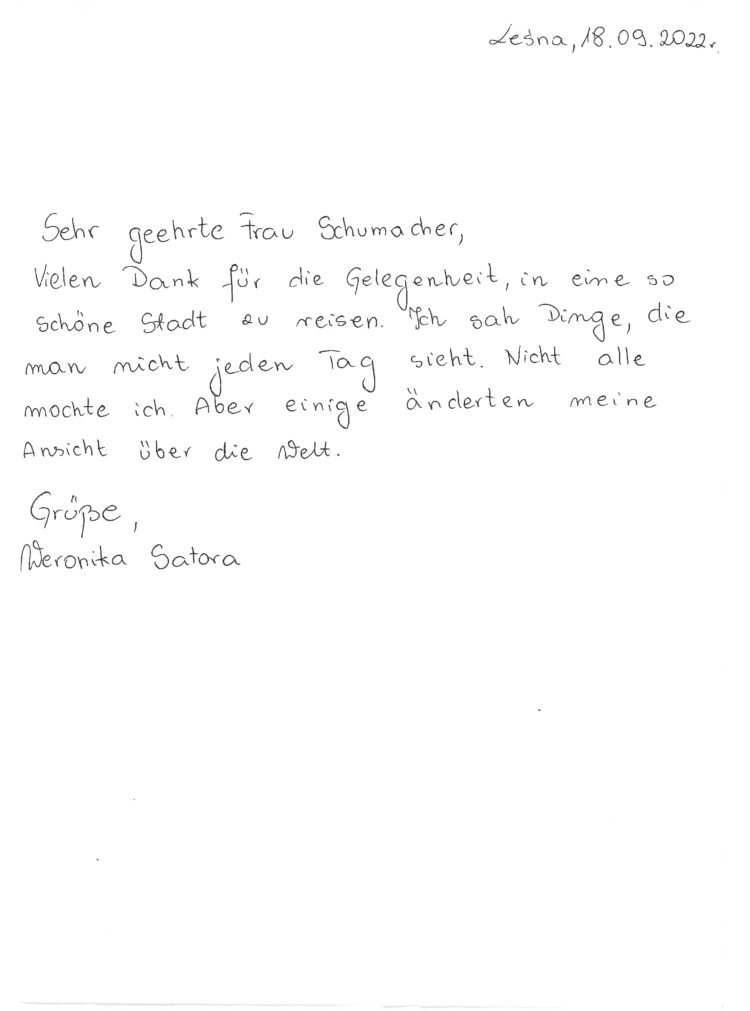 Leśna, 18.09.2022r.
Sehr geehrte Frau Schumacher,
Vielen Dank für die Gelegenheit, in eine so
schöne Stadt zu reisen. Ich sah Dinge, die
man nicht jeden Tag sieht. Nicht alle
mochte ich. Aber einige änderten meine
Ansicht über die Welt.
Grüße,
Weronika Satora